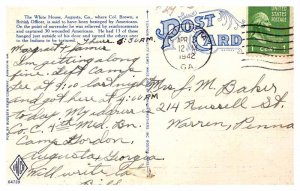 The White House, Augusta, Ga., where Col. Brown, a
British Officer, is said to have been besieged by Americans.
On the point of surrender he was relieved by reinforcements
and captured 30 wounded Americans. He had 13 of these
hanged just outside of his door and turned the others over
to the Indians to be tortured.
6:30 A.M.
I'm getting along
fine. Left Camp
Lee at 9:00 last night
and got here at 4:00 AM
today. My address is
Co. C. 4th Med. Bn.
Camp Gordon,
Augusta, Georgia
Will write later
Bill
64739
POST CARD
APR
12
1942
GA.
1 CENT
Mrs. J. M. Baker
214 Russell St.
Warren, Penna